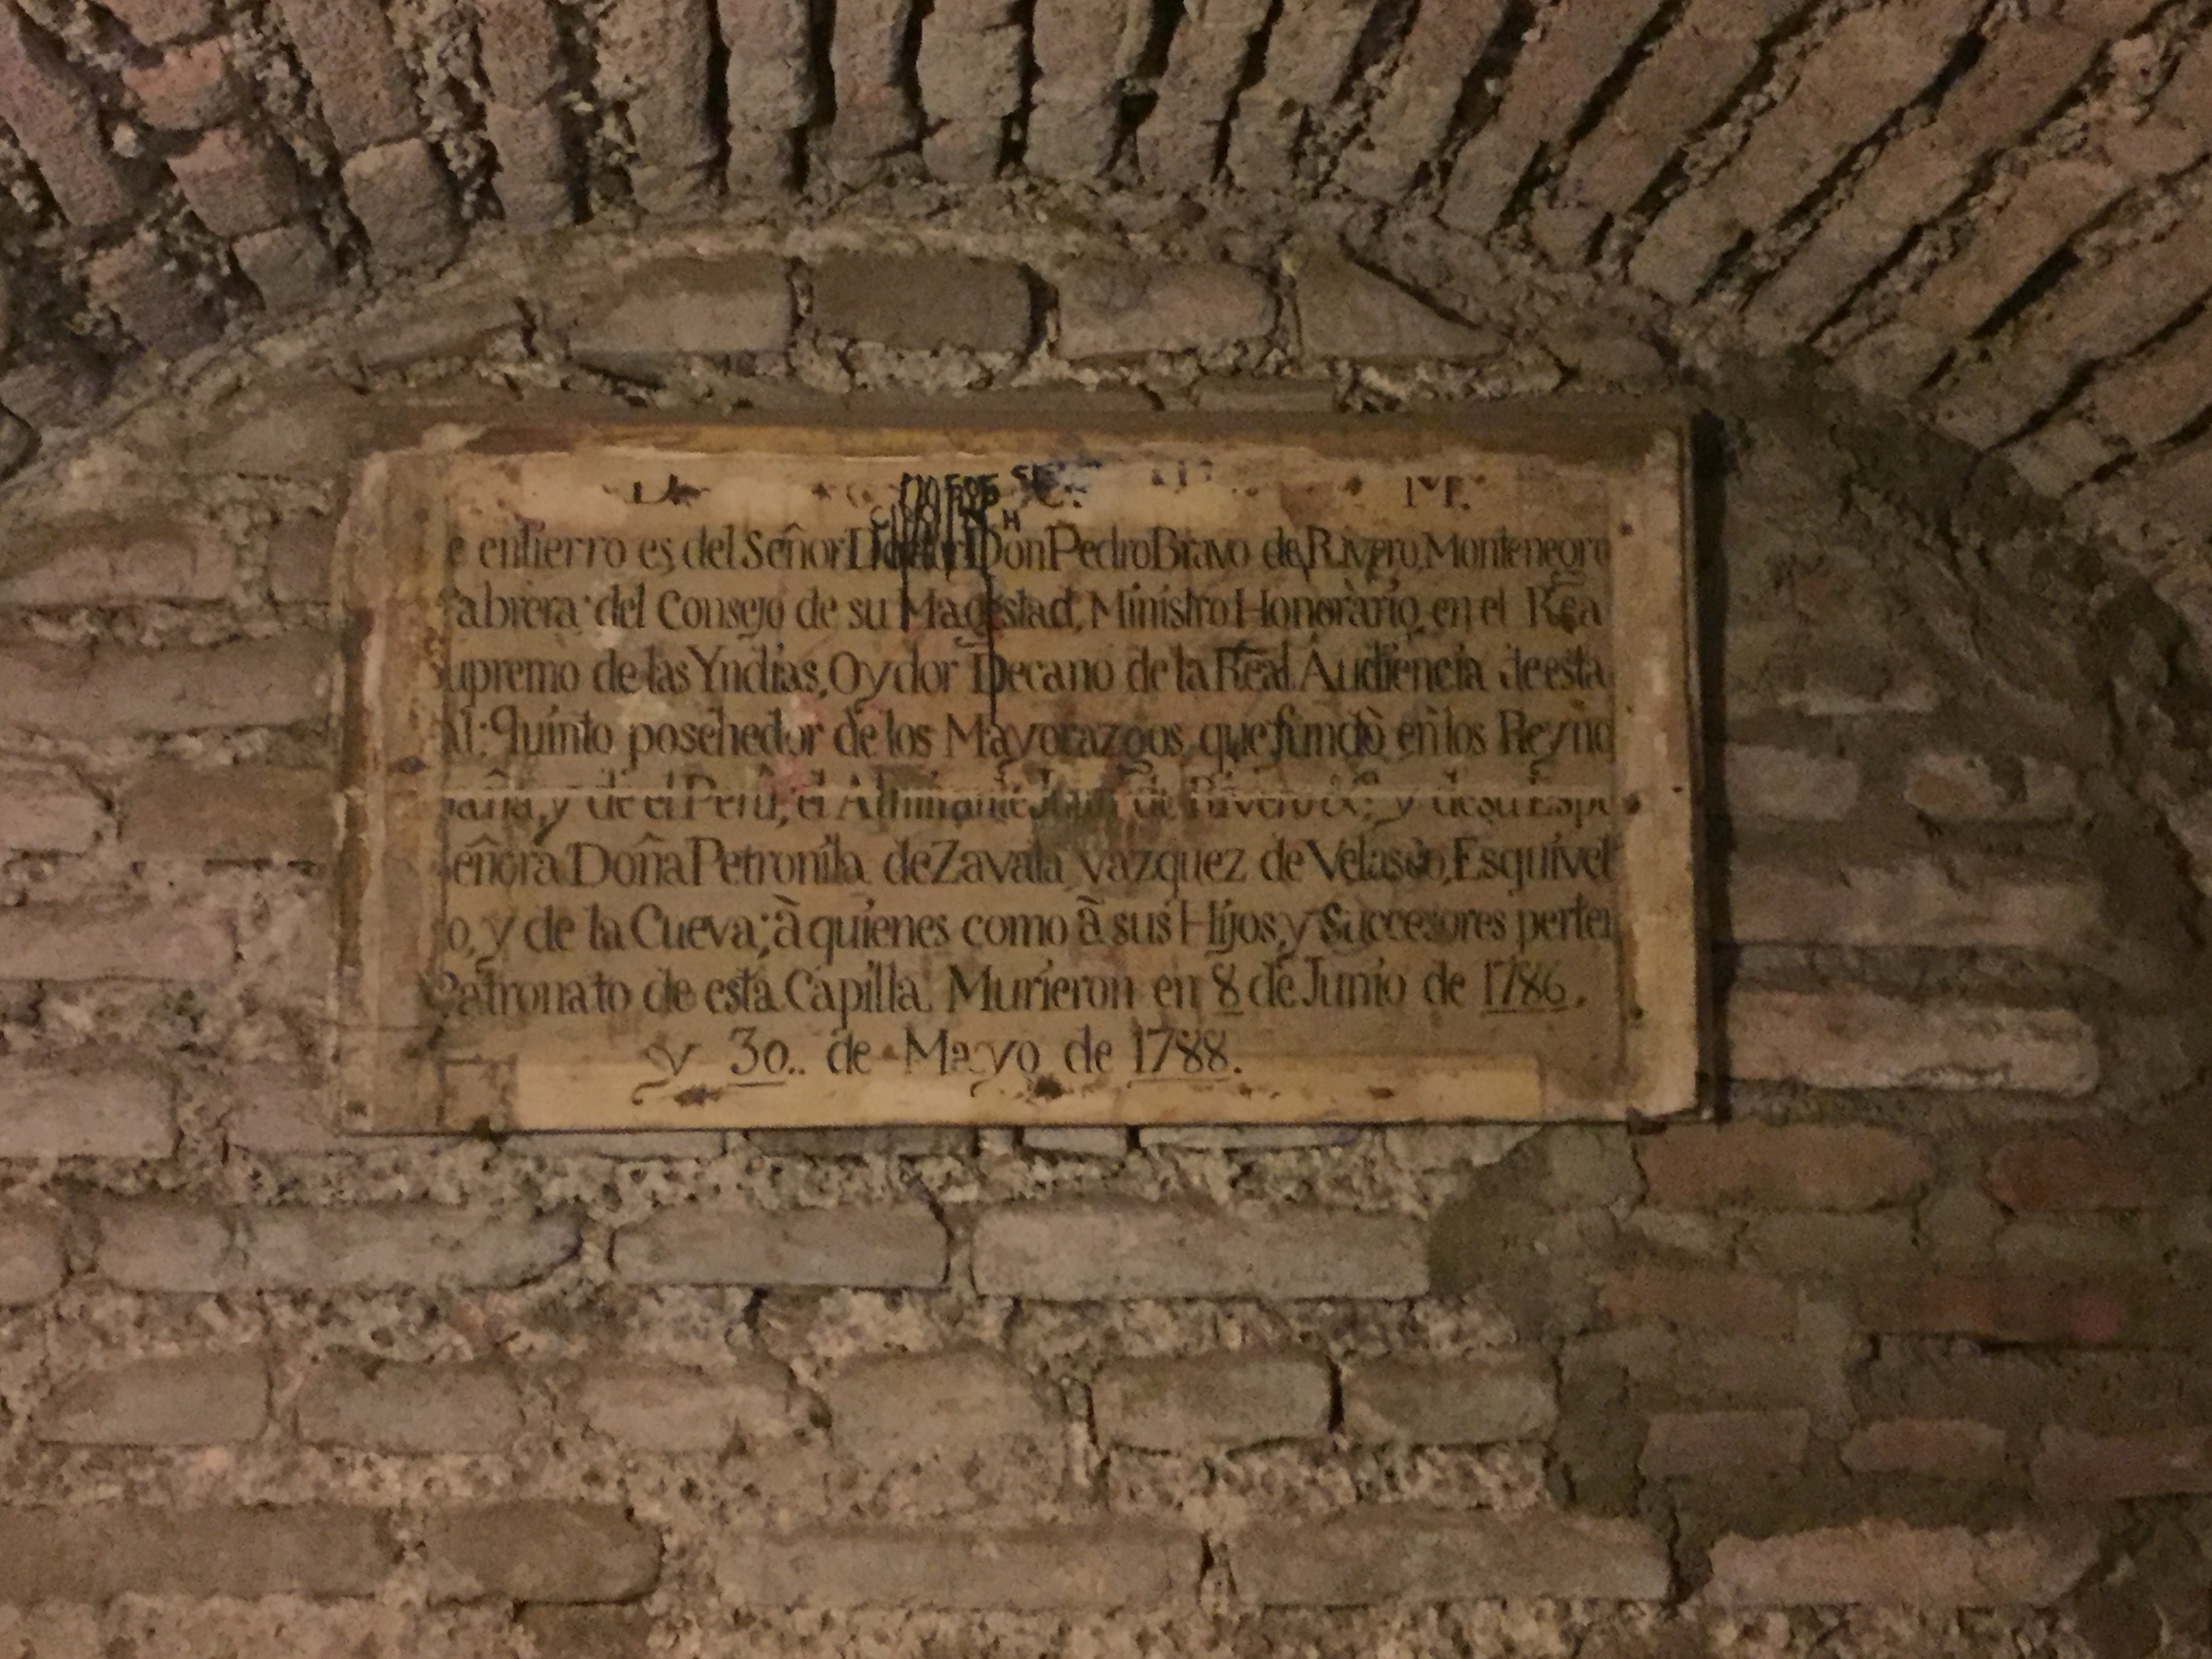 e entierro es del Señor Doctor Don Pedro Bravo de Rivero, Montenegro
Cabrera del Consejo de su Magestad, Ministro Honorario en el Rea
Supremo de las Yndias, Oydor Decano de la Real Audiencia de esta
al: Quinto posehedor de los Mayorazgos que fundò en los Reyno
paña, y de el Perú, el Almirante Juan de Rivero &c; y de su Espo
Señora Doña Petronila de Zavala Vazquez de Velasco, Esquivel
o, y de la Cueva; à quienes como à sus Hijos, y Successores perten
Patronato de esta Capilla. Murieron en 8 de Junio de 1786.
y 30.. de Mayo de 1788.